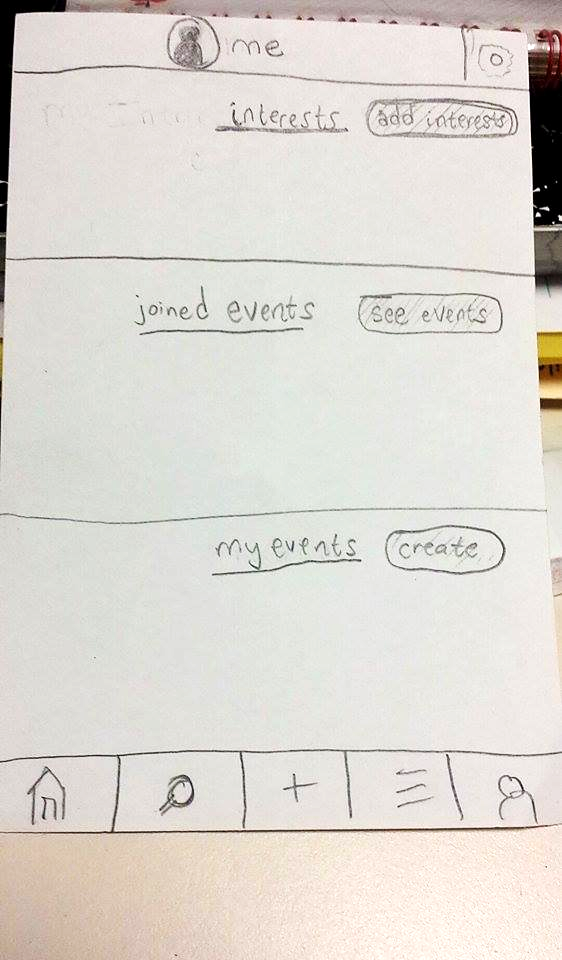 me
interests add interests
joined events see events
my events create